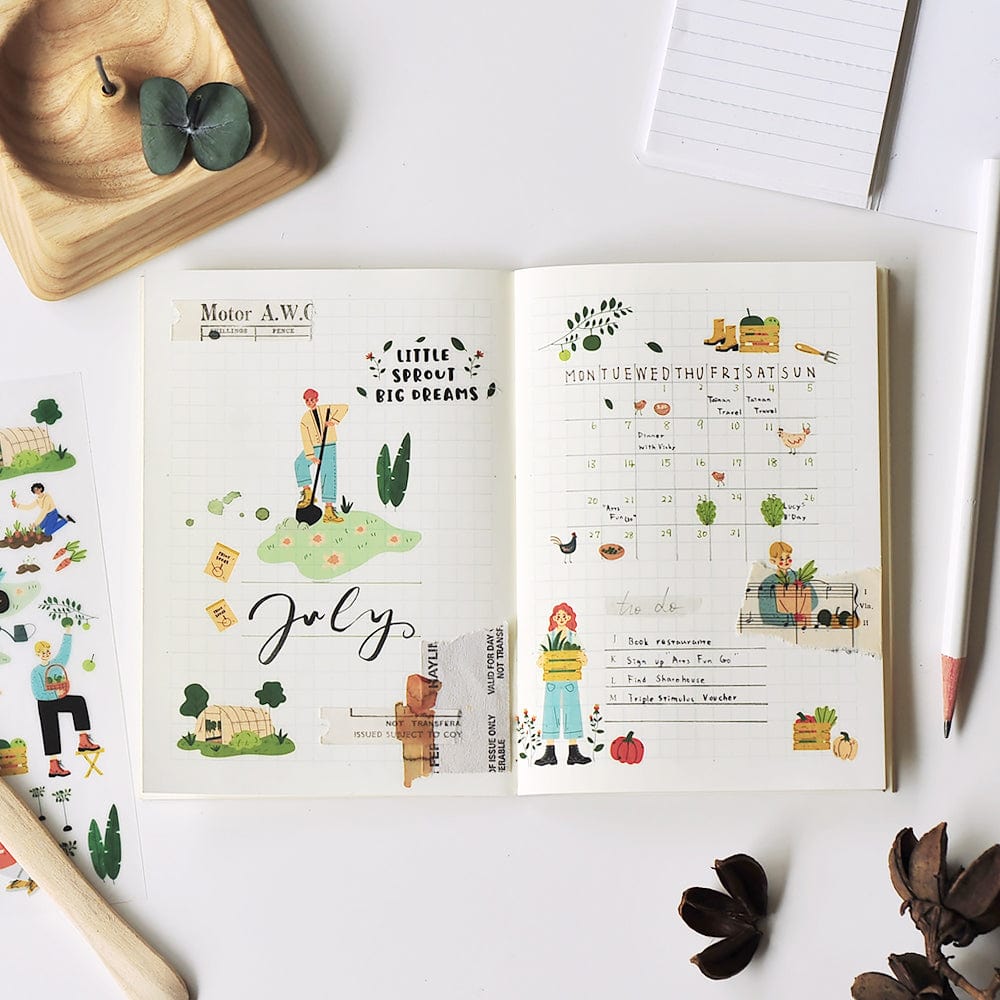 Motor A.W.
SHILLINGS PENCE
LITTLE
SPROUT
BIG DREAMS
July
HAYLI
VALID FOR DAY
NOT TRANSF
NOT TRANSFERA
ISSUED SUBJECT TO COY
OF ISSUE ONLY
ERABLE
MON TUE WED THU FRI SAT SUN
1 2 3 4 5
Tainan Travel Tainan Travel
6 7 8 9 10 11 12
Dinner
with Vicky
13 14 15 16 17 18 19
20 21 22 23 24 25 26
"Arts
Fun Go"
Lucy's
B'Day
27 28 29 30 31
to do
J Book restaurante
K Sign up "Arts Fun Go"
L Find Sharehouse
M Triple Stimulus Voucher
I
Vln.
II